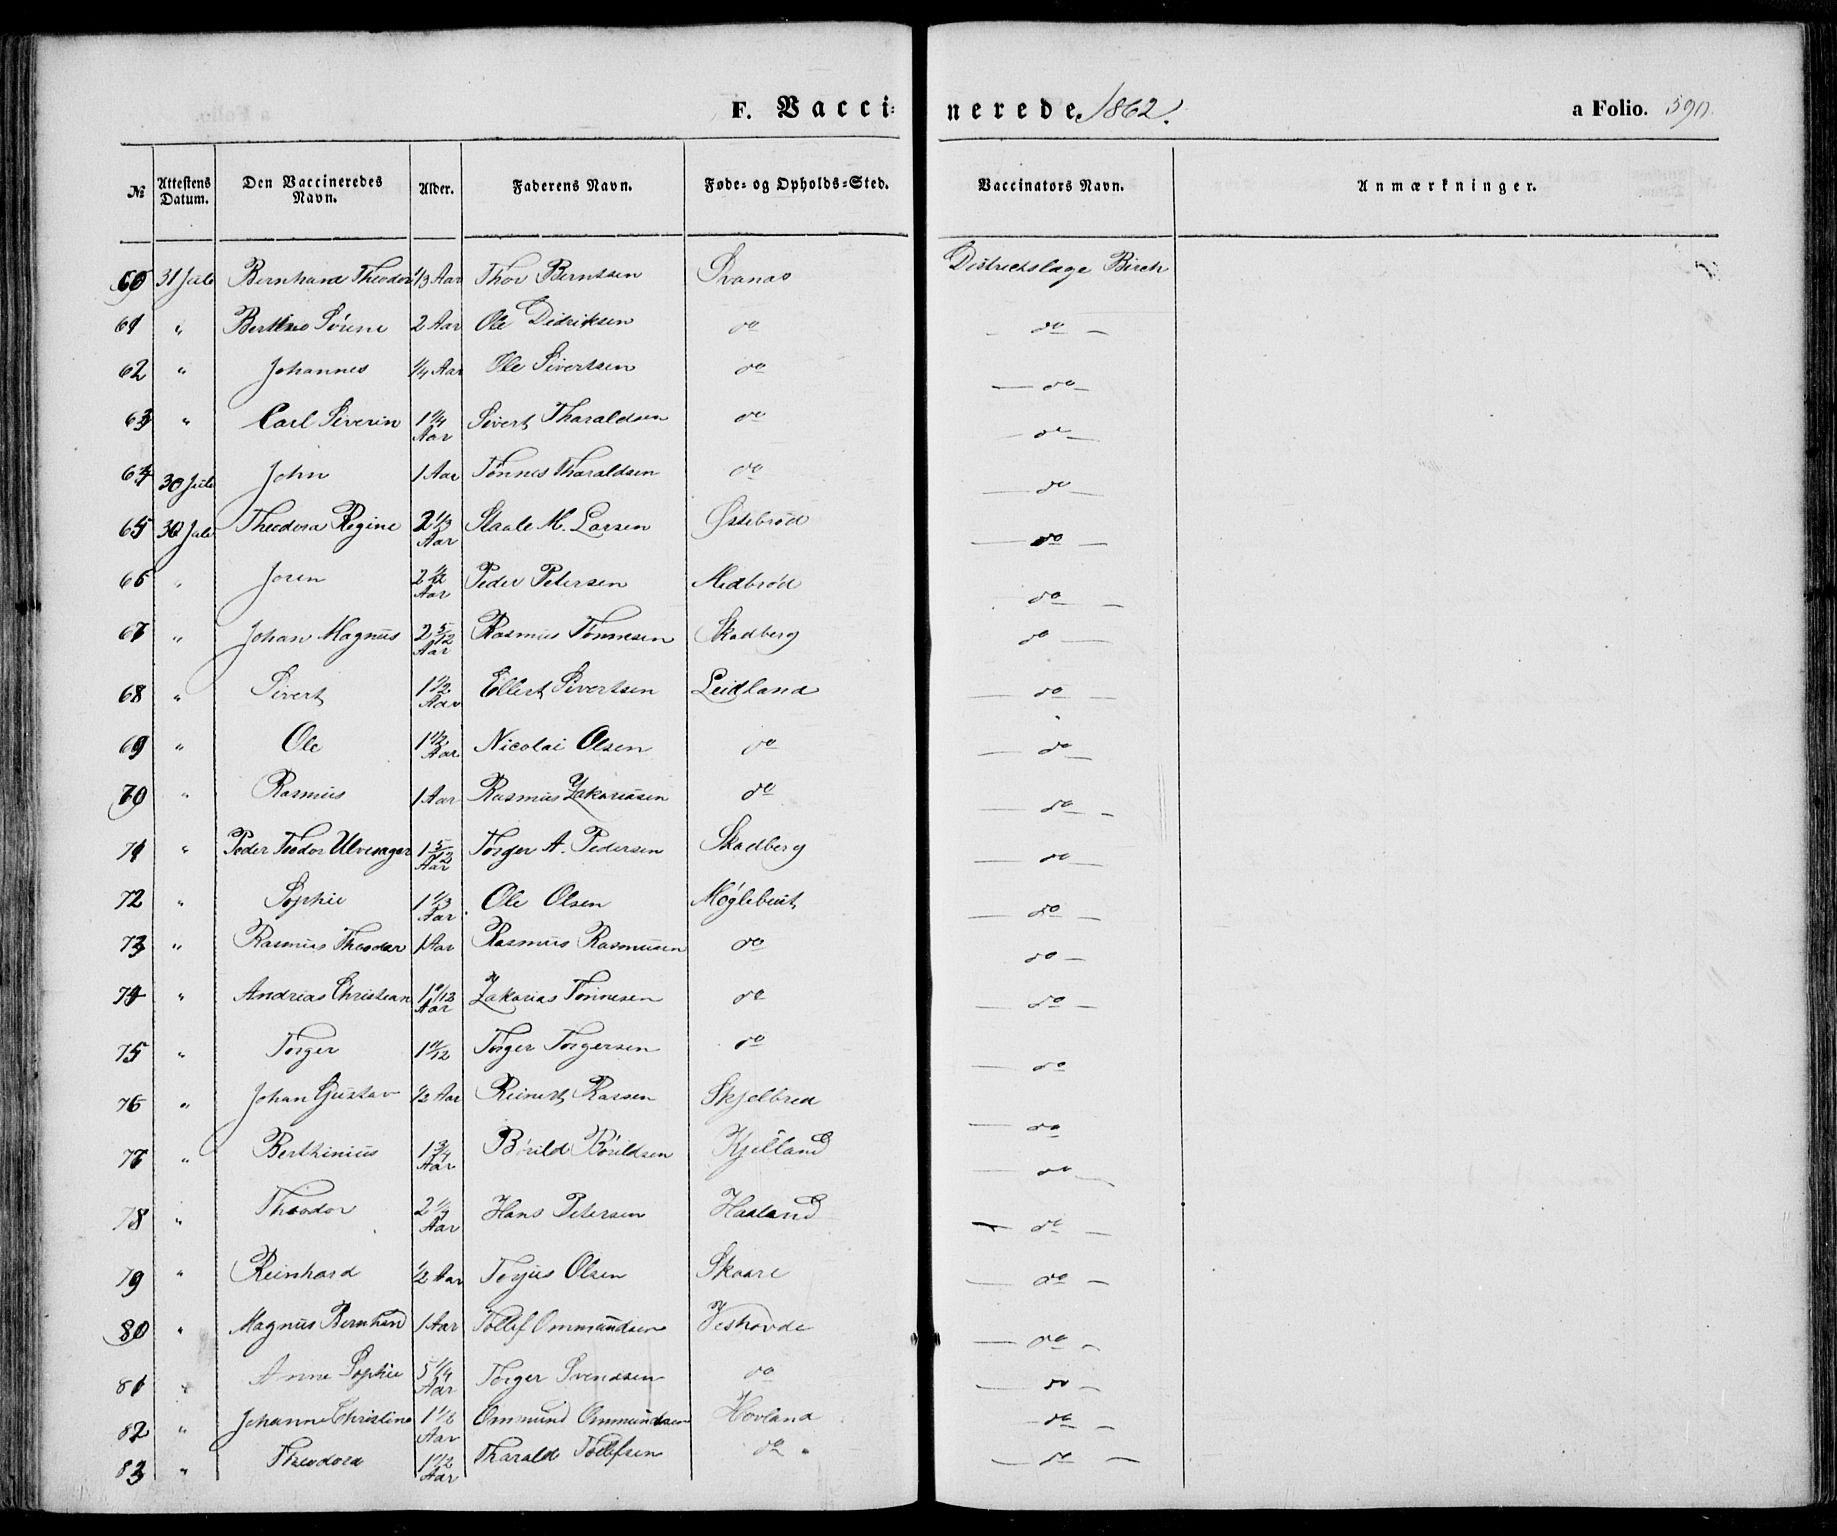 F. Vacci- nerede. 1862. a Folio. 390.
№ Attestens Datum. Den Vaccineredes Navn. Alder. Faderens Navn. Føde- og Opholds-Sted. Vaccinators Navn. Anmærkninger.
60 31 Juli Bernhard Theodor 1/3 Aar Thor Berntsen Svanæs Districtslæge Birch
61 " Berthe Sørine 2 Aar Ole Didriksen do — do —
62 " Johannes 1/4 Aar Ole Sivertsen do — do —
63 " Carl Severin 1 1/4 Aar Sivert Tharaldsen do — do —
64 30 Juli John 1 Aar Tønnes Tharaldsen do — do —
65 30 Juli Theodora Regine 2 1/3 Aar Staale M. Larsen Østebrød — do —
66 " Joren 2 1/2 Aar Peder Petersen Medbrød do —
67 " Johan Magnus 2 5/12 Aar Rasmus Tønnesen Skadberg do —
68 " Sivert 1 1/2 Aar Ellert Sivertsen Leidland — do —
69 " Ole 1 1/2 Aar Nicolai Olsen do — do —
70 " Rasmus 1 Aar Rasmus Zakariasen do — do —
71 " Peder Theodor Ulvesager 1 5/12 Aar Torger A. Pedersen Skadberg — do —
72 " Sophie 1 1/3 Aar Ole Olsen Møglebust — do —
73 " Rasmus Theodor 1 Aar Rasmus Rasmussen do — do —
74 " Andreas Christian 1 /12 Aar Zakarias Tønnesen do — do —
75 " Torger 1 /12 Torger Torgersen do — do —
76 " Johan Gustav 1/2 Aar Reinert Skjelbred — do
77 " Berthinius 1 3/4 Aar Børild Børildsen Kjelland — do —
78 " Theodor 2 1/3 Aar Hans Petersen Haaland — do —
79 " Reinhard 1/2 Aar Torjus Olsen Skaare — do —
80 " Magnus Bernhard 1 Aar Tollef Ommundsen Veshovde — do —
81 " Anne Sophie 5 1/4 Aar Torger Svendsen do — do —
82 " Johanne Christine 1 1/2 Aar Ommund Ommundsen Hovland — do —
83 " Theodora 1 1/2 Aar Tharald Tollefsen do " — do —